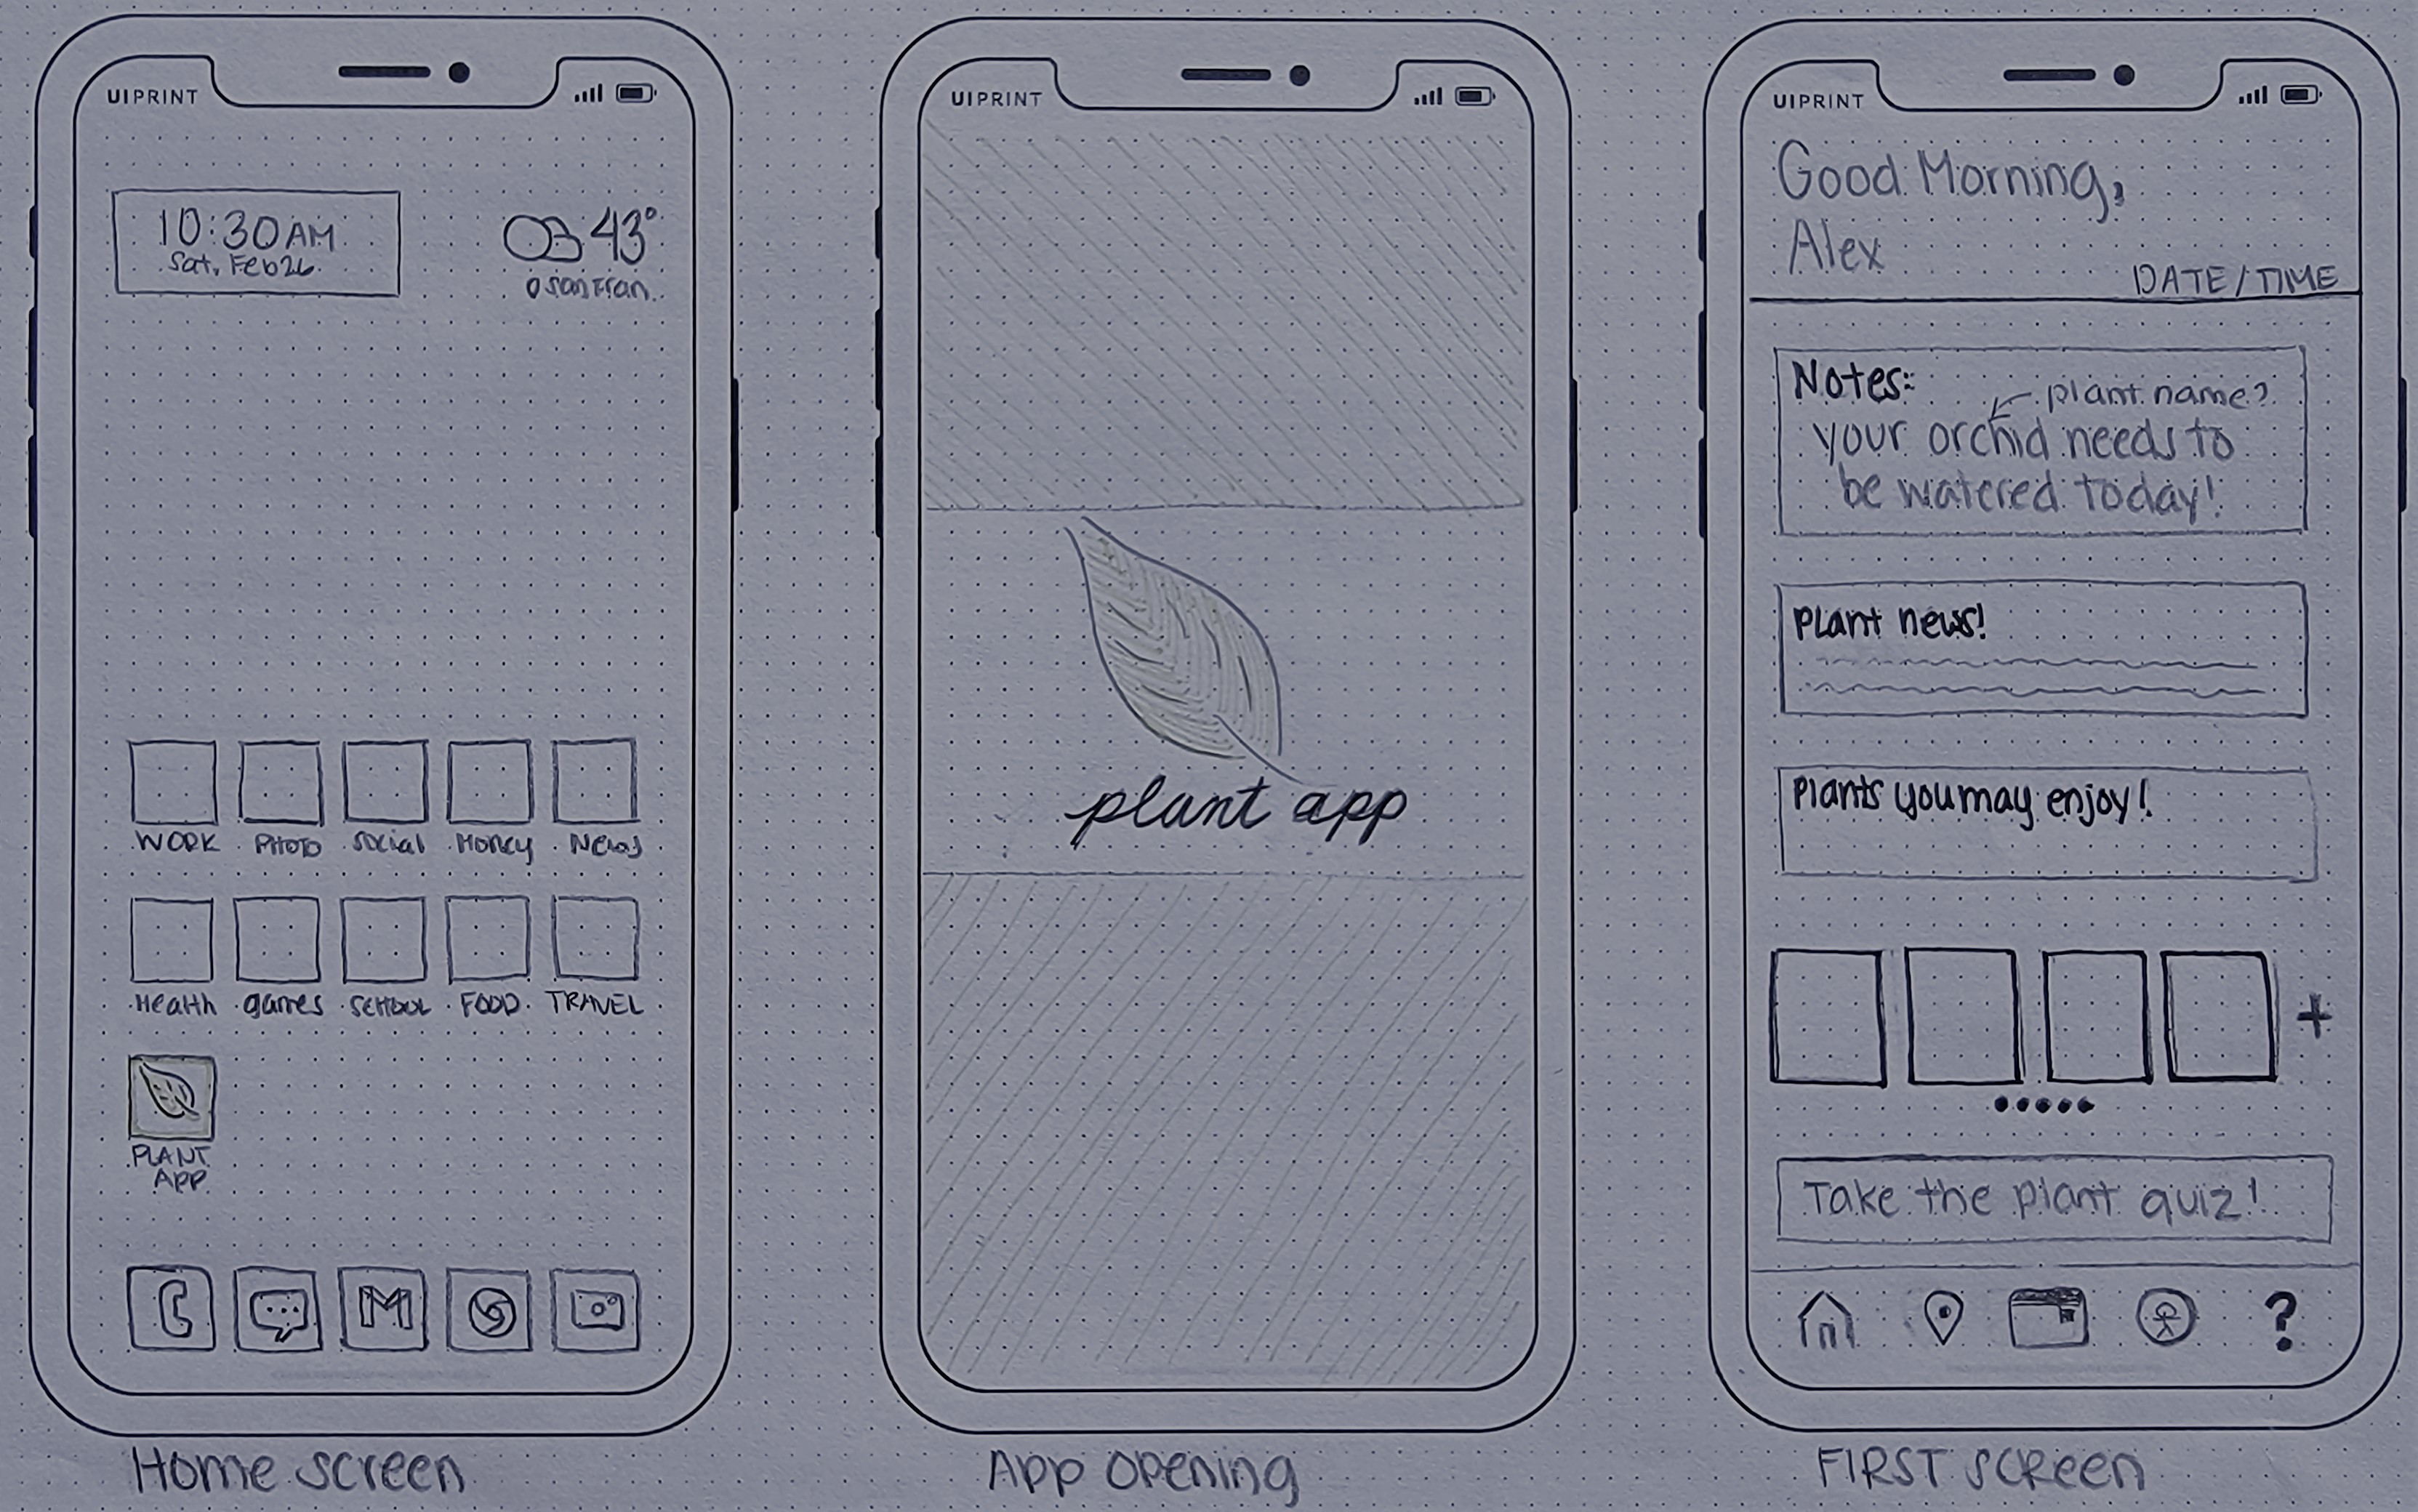 UIPRINT
10:30AM
Sat, Feb 26
43°
San Fran.
WORK PHOTO Social Money News
Health games SCHOOL FOOD TRAVEL
PLANT
APP
M
Home screen
UIPRINT
plant app
App opening
UIPRINT
Good Morning,
Alex
DATE/TIME
Notes:
plant name?
your orchid needs to
be watered today!
Plant news!
Plants you may enjoy!
+
Take the plant quiz!
?
FIRST SCREEN